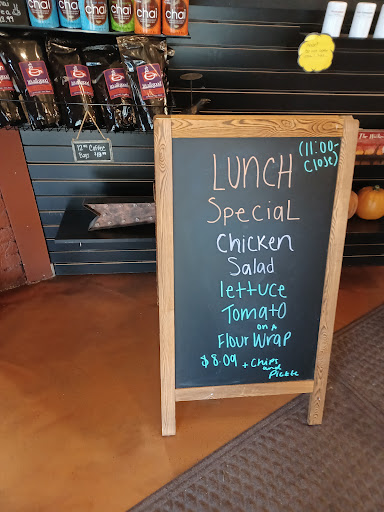 chai
chai
chai
chai
12 oz Coffee
Bags
LUNCH
(11:00-
Close)
Special
Chicken
Salad
lettuce
Tomato
on A
Flour Wrap
$8.09 + Chips
and
Pickle